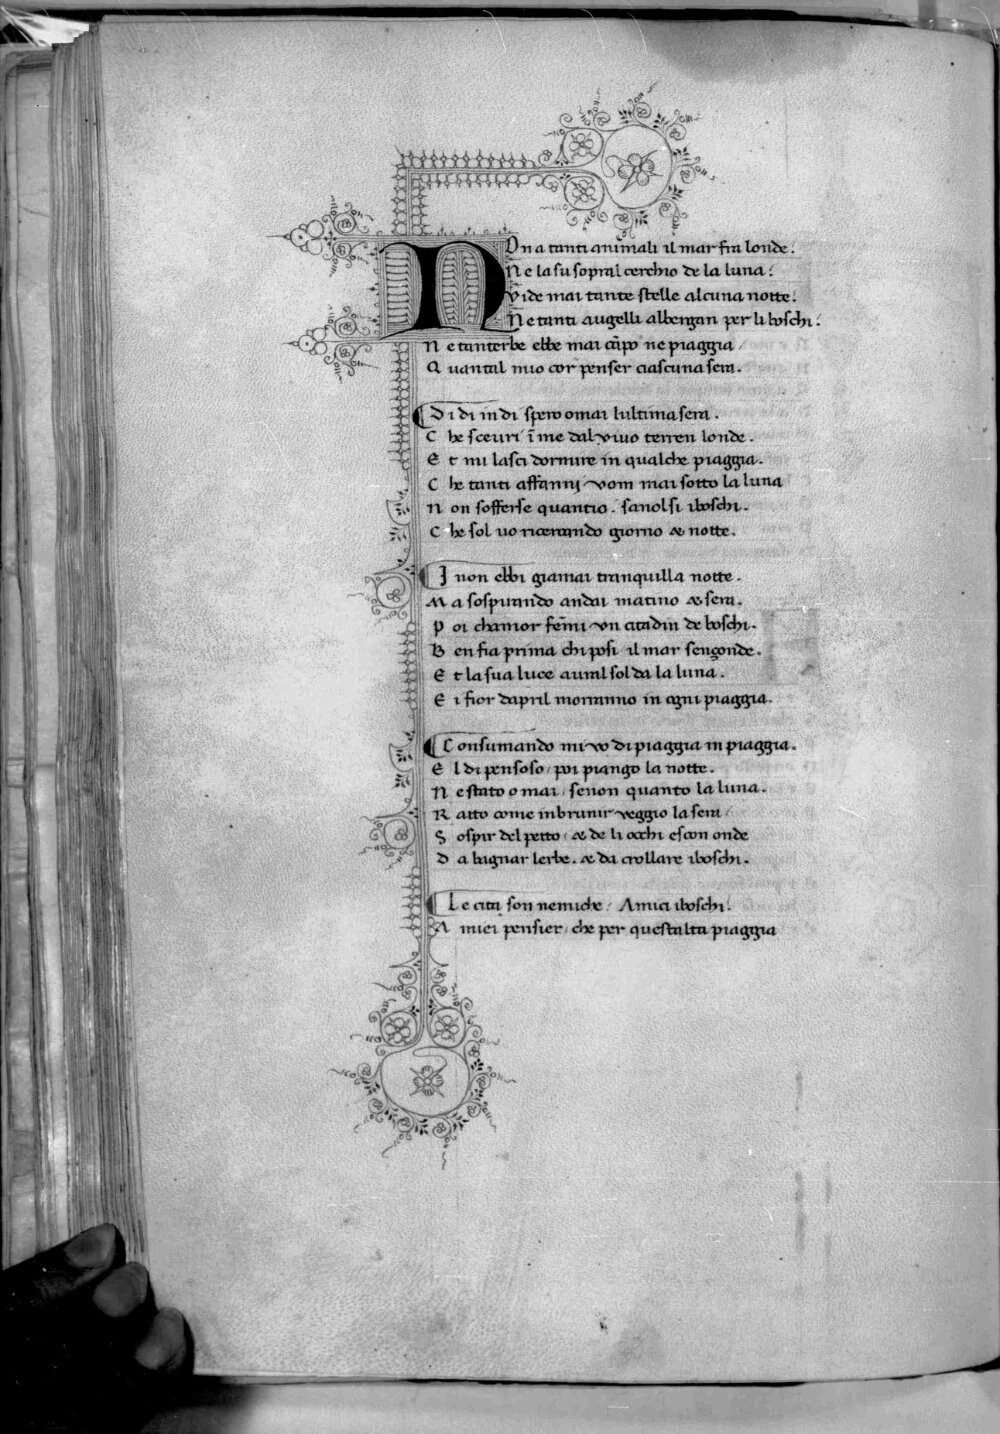 NOn a tanti animali il mar fra londe.
Ne la su sopral cerchio de la luna:
Vide mai tante stelle alcuna notte.
Ne tanti augelli albergan per li boschi.
Ne tanterbe ebbe mai cāpo ne piaggia
Quantal mio cor penser ciascuna sera.
Di di in di spero omai lultima sera.
Che sceuri ī me dal vivo terren londe.
Et mi lasci dormire in qualche piaggia.
Che tanti affanni vom mai sotto la luna
Non sofferse quantio. sanolsi iboschi.
Che sol vo ricercando giorno & notte.
I non ebbi giamai tranquilla notte.
Ma sospirando andai matino & sera.
Poi chamor femmi vn citadin de boschi.
Ben fia prima chi posi il mar sençonde.
Et la sua luce aural sol da la luna.
Ei fior dapril morranno in ogni piaggia.
Consumando mi vo di piaggia in piaggia.
El di pensoso / poi piango la notte.
Ne stato o mai / se non quanto la luna.
Ratto come inbrunir veggio la sera /
Sospir del petto / & de li occhi escon onde
Da bagnar lerbe. & da crollare iboschi.
Le citta son nemiche / Amici iboschi.
A miei pensier / che per questalta piaggia